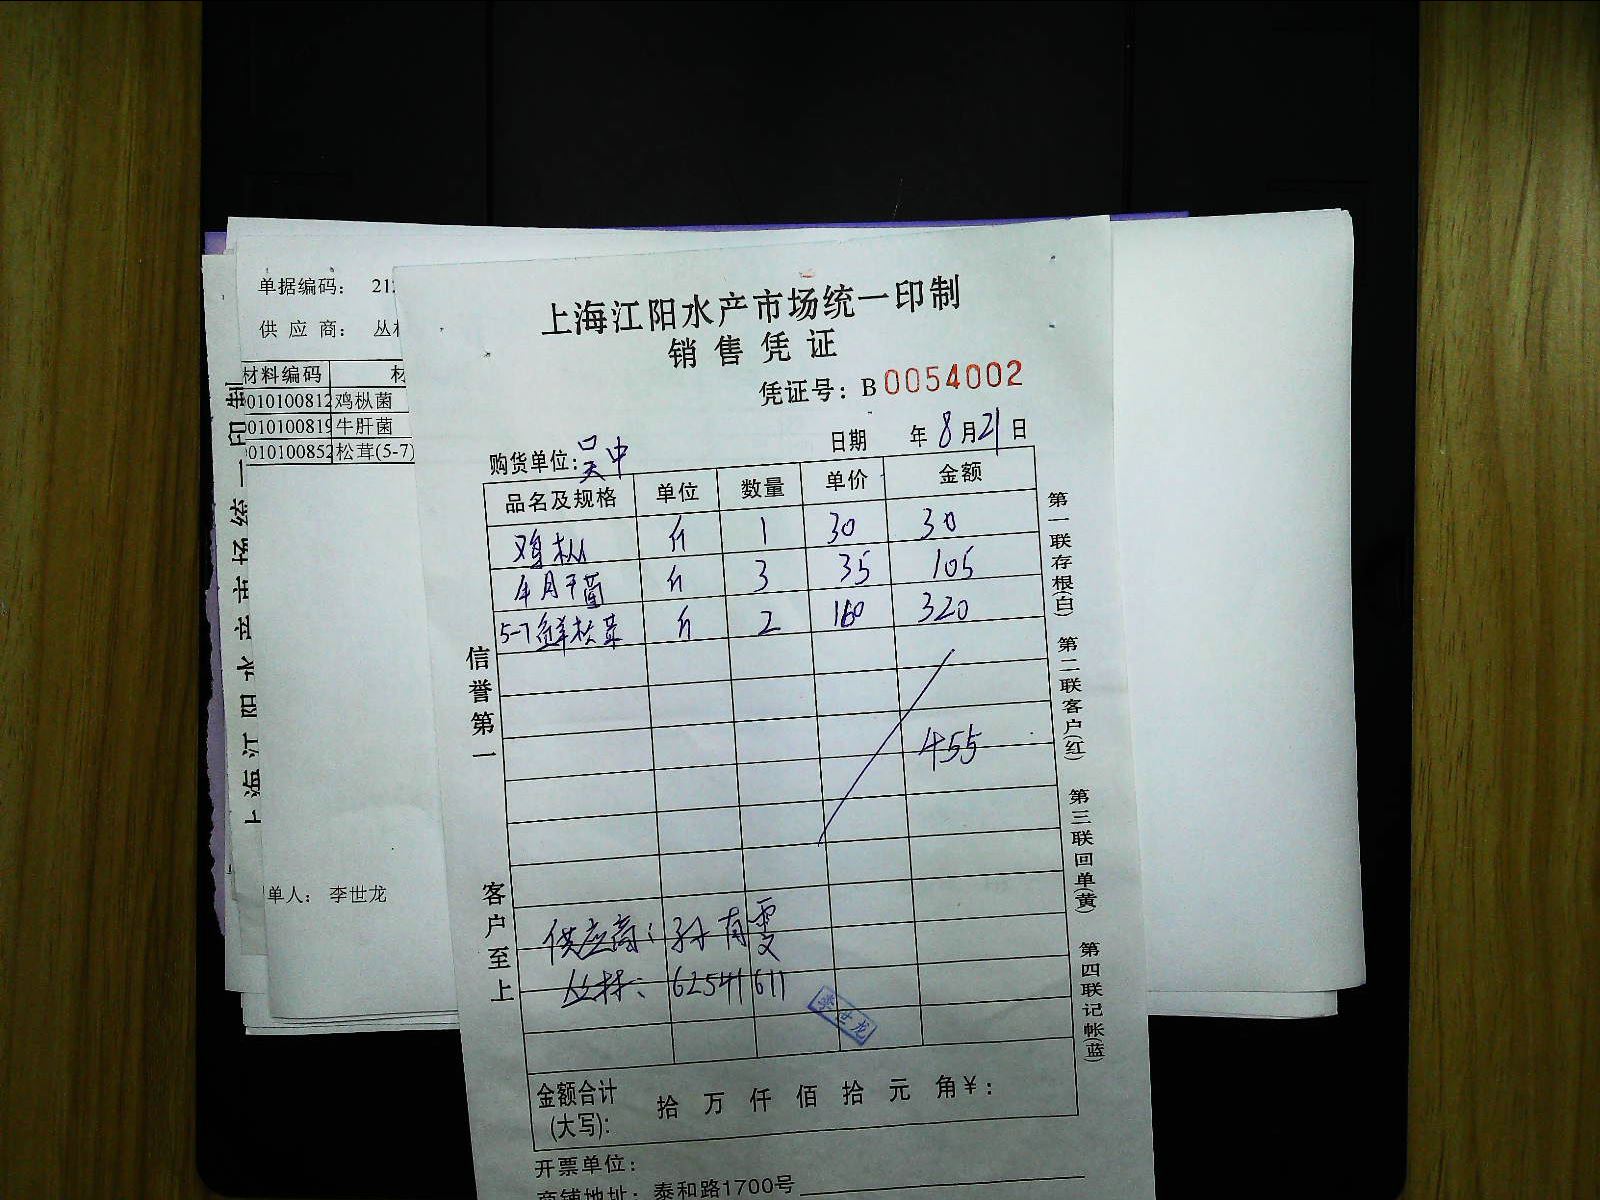 单据编码： 212
供 应 商： 丛林
材料编码 材
010100812 鸡枞菌
010100819 牛肝菌
010100852 松茸(5-7)
单人： 李世龙
上海江阳水产市场统一印制
上海江阳水产市场统一印制
销售凭证
凭证号：B0054002
购货单位：吴中 日期 年8月21日
品名及规格 单位 数量 单价 金额
鸡枞 斤 1 30 30
牛月干菌 斤 3 35 105
5-7鲜松茸 斤 2 160 320
455
供应商：孙有雯
丛林：62541611
李世龙
金额合计(大写)： 拾 万 仟 佰 拾 元 角￥：
开票单位：
商铺地址：泰和路1700号
信誉第一
客户至上
第一联存根(白)
第二联客户(红)
第三联回单(黄)
第四联记帐(蓝)